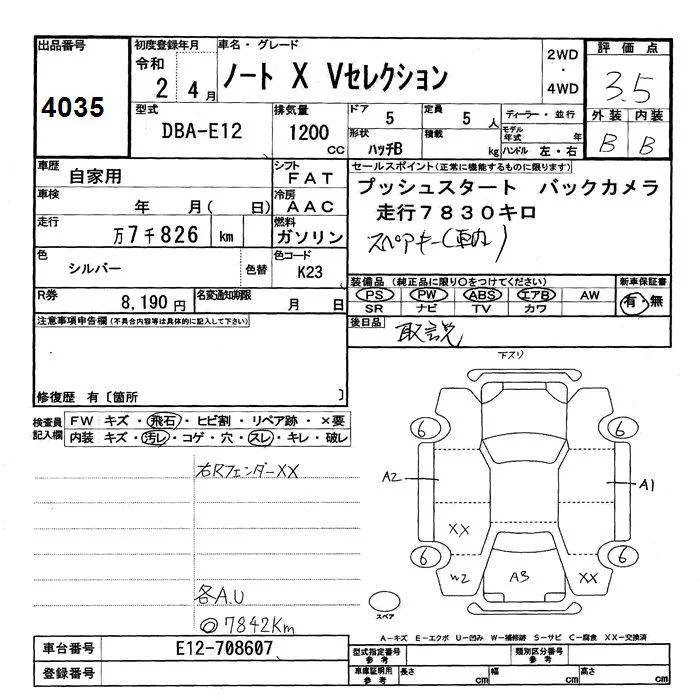 出品番号
4035
初度登録年月
令和
2 4月
車名・グレード
ノート X Vセレクション
2WD
・
4WD
評価点
3.5
外装 内装
B B
型式
DBA-E12
排気量
1200
CC
ドア
5
定員
5 人
形状
ハッチB
積載
kg
ディーラー・並行
モデル年式 年
ハンドル 左・右
車歴
自家用
シフト
FAT
車検
年 月( 日)
冷房
AAC
走行
万7千826 km
燃料
ガソリン
色
シルバー
色替
色コード
K23
R券
8,190円
名変通知期限
月 日
セールスポイント(正常に機能するものに限ります)
プッシュスタート バックカメラ
走行7830キロ
スペアキー(車内)
装備品 (純正品に限り○をつけてください)
PS PW ABS エアB AW
SR ナビ TV カワ
新車保証書
有・無
後日品
取説
注意事項申告欄(不具合内容等は具体的に記入して下さい)
修復歴 有〔箇所 〕
検査員
記入欄
FW キズ・飛石・ヒビ割・リペア跡・×要
内装 キズ・汚レ・コゲ・穴・スレ・キレ・破レ
右Rフェンダー XX
各A.U
◎7842Km
下スリ
6
6
A2
A1
XX
6
6
W2
A3
XX
スペア
A-キズ E-エクボ U-凹み W-補修跡 S-サビ C-腐食 XX-交換済
車台番号
E12-708607
登録番号
型式指定番号
参考
類別区分番号
参考
車庫証明用
参考
長さ cm
幅 cm
高さ cm